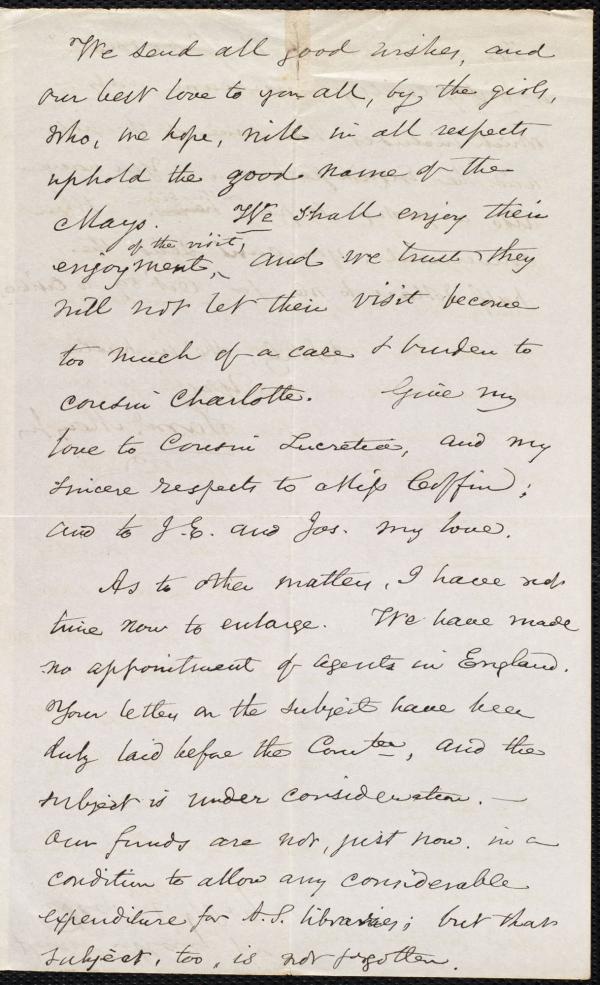 We send all good wishes, and
our best love to you all, by the girls,
who, we hope, will in all respects
uphold the good name of the
Mays. We shall enjoy their
of the visit,
enjoyment, and we trust they
will not let their visit become
too much of a care & burden to
cousin Charlotte. Give my
love to Cousin Lucretia, and my
sincere respects to Miss Coffin;
and to J.E. and Jos. my love.
As to other matters, I have not
time now to enlarge. We have made
no appointment of agents in England.
Your letters on the subject have been
duly laid before the Comtee, and the
subject is under consideration. —
Our funds are not, just now, in a
condition to allow any considerable
expenditure for A.S. libraries; but that
subject, too, is not forgotten.